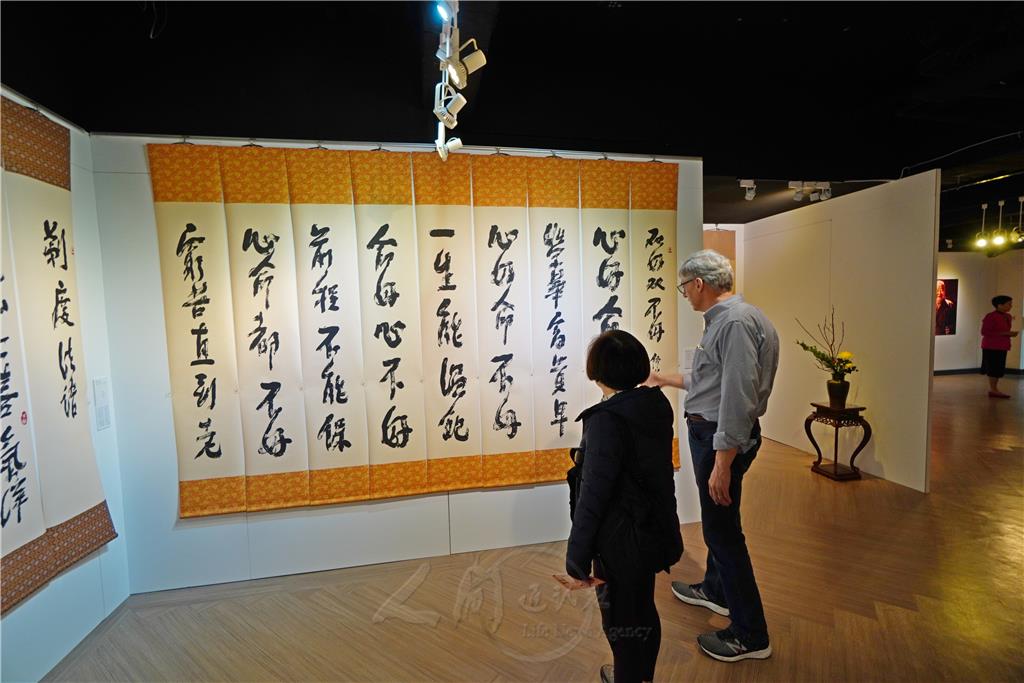 心好命
榮華富貴年
心好命不好
一生能溫飽
命好心不好
前程不能保
心命都不好
窮苦直到老
剃度法語
喜氣洋
人間通訊社
Life News Agency